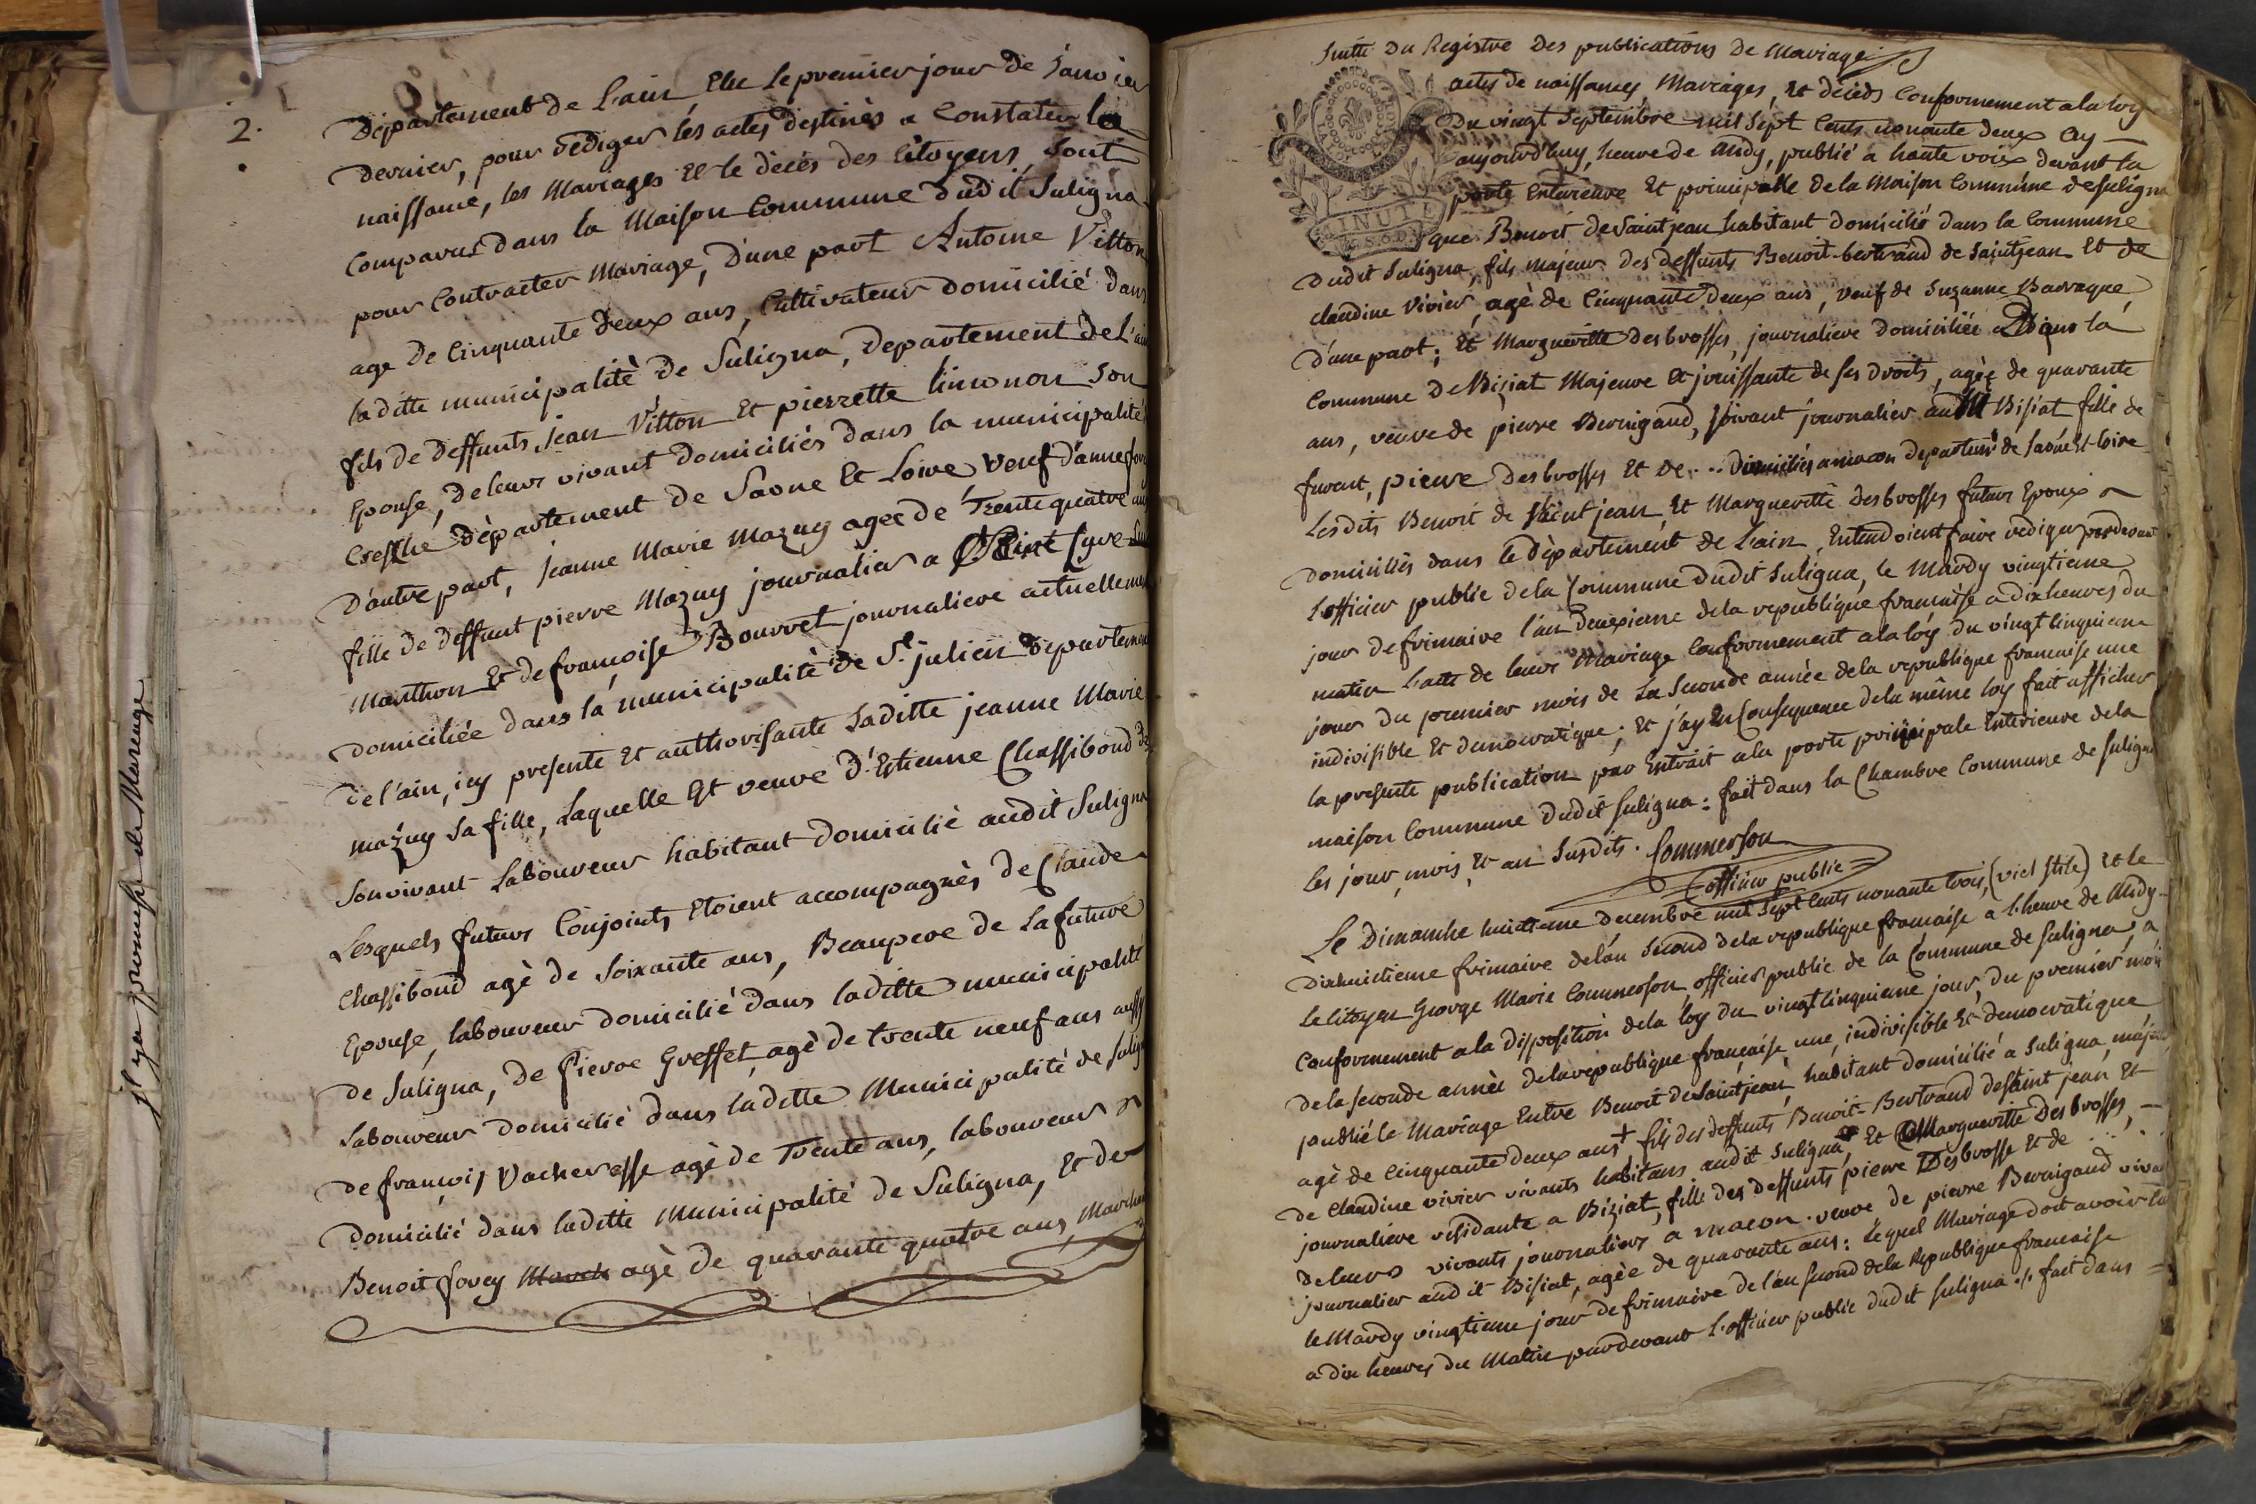 2.
Département de L'ain Elu Le premier jour de Janvier
dernier, pour rédiger les actes destinés a Constater la
naissance, les Mariages Et le décès des Citoyens, sont
Comparus dans la Maison Commune dudit Suligna
pour Contracter Mariage, D'une part Antoine Vitton
age De Cinquante deux ans, Cultivateur domicilié dans
laditte municipalité de Suligna, departement de L'ain
fils de deffunts Jean Vitton Et pierrette limonon son
Epouse, de leur vivant domiciliés dans la municipalité
Creshe Département de Saone Et Loire Veuf d'anne
D'autre part, Jeanne Marie Mazuy agée de Trente quatre ans
fille de deffunt pierre Mazuy journalier a Saint Cyre
Manthon Et de françoise Bourret journaliere actuellement
domiciliée dans la municipalité de St. julien Departement
de l'ain, icy presente Et authorisante saditte jeanne Marie
mazuy sa fille, Laquelle Est veuve d'Estienne Chassiboud de
son vivant Laboureur habitant domicilié audit Suligna
Lesquels futurs Conjoints Etoient accompagnés de Claude
Chassiboud agé de soixante ans, Beaupere de La future
Epouse, laboureur domicilié dans laditte municipalité
de Suligna, de Pierre Greffet, agé de trente neuf ans aussy
Laboureur domicilié dans laditte Municipalité de Suligna
de françois Vacheresse agé de Trente ans, laboureur
Domicilié dans laditte municipalité de Suligna, Et de
Benoit forey March agé de quarante quatre ans, Marchand
il y a promesse de Mariage
Suitte Du Registre Des publications De Mariage
actes de naissances Mariages, Et décèds Conformement a la loy
Du vingt Septembre mil Sept Cents nonante deux Ay
aujourd'huy, heure de Midy, publié a haute voix devant la
porte Exterieure Et principalle de la Maison Commune de Suligna
que Benoit de Saintjean habitant domicilié dans la Commune
Dudit Suligna, fils majeur des deffunts Benoit-bertrand de Saintjean Et de
claudine Vivier, agé de Cinquante deux ans, veuf de Suzanne Barraque
D'une part; Et Margueritte desbrosses, journaliere domiciliée Dans la
Commune De Biziat Majeure Et jouissante de ses droits, agée de quarante
ans, veuve de pierre Bernigaud, vivant journalier audit Bisiat fille de
furent, pierre Desbrosses Et De .. Domiciliés a macon departemt de Saone Et Loire
Lesdits Benoit de Saint jean, Et Margueritte desbrosses futurs Epoux
domiciliés dans le département de L'ain, Entendoient faire rediger pardevant
L'officier public de la Commune dudit Suligna, le Mardy vingtieme
jour de frimaire l'an Deuxieme de la republique française a dix heures du
matin L'acte de leur Mariage Conformement a la loy du vingt Cinquieme
jour Du premier mois de La Seconde année de la republique française une
indivisible Et democratique; Et j'ay En Consequence de la même loy fait afficher
la presente publication par Extrait a la porte principale Exterieure de la
maison Commune dudit Suligna: fait dans la Chambre Commune de Suligna
les jour, mois, Et an Susdits. Commerson
officier public
Le Dimanche huitieme decembre mil Sept Cents nonante trois, (viel stile) Et le
Dixhuictieme frimaire de l'an Second de la republique française a L'heure de Midy
Le Citoyen George Marie Commerson officier public de la Commune de Suligna, a
Conformement a la disposition de la loy du vingt Cinquieme jour, du premier mois
de la seconde année de la republique française, une, indivisible Et democratique
publié le Mariage Entre Benoit de Saintjean, habitant domicilié a Suligna, majeur
agé de Cinquante deux ans + fils des deffunts Benoit-Bertrand de Saint jean Et
de Claudine vivier vivants habitans audit Suligna, Et Margueritte Desbrosses,
journaliere residante a Biziat, fille des deffunts pierre Desbrosse Et de ...
De leurs vivants journaliers a macon. veuve de pierre Bernigaud vivant
journalier audit Bisiat, agée de quarante ans: lequel Mariage doit avoir lieu
le Mardy vingtieme jour de frimaire de l'an second de la Republique française
a dix heures du Matin pardevant L'officier public dudit Suligna ./. fait dans